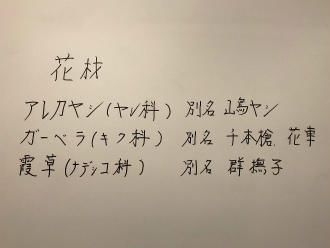 花材
アレカヤシ(ヤシ科) 別名 山鳥ヤシ
ガーベラ(キク科) 別名 千本槍、花車
霞草(ナデシコ科) 別名 群撫子